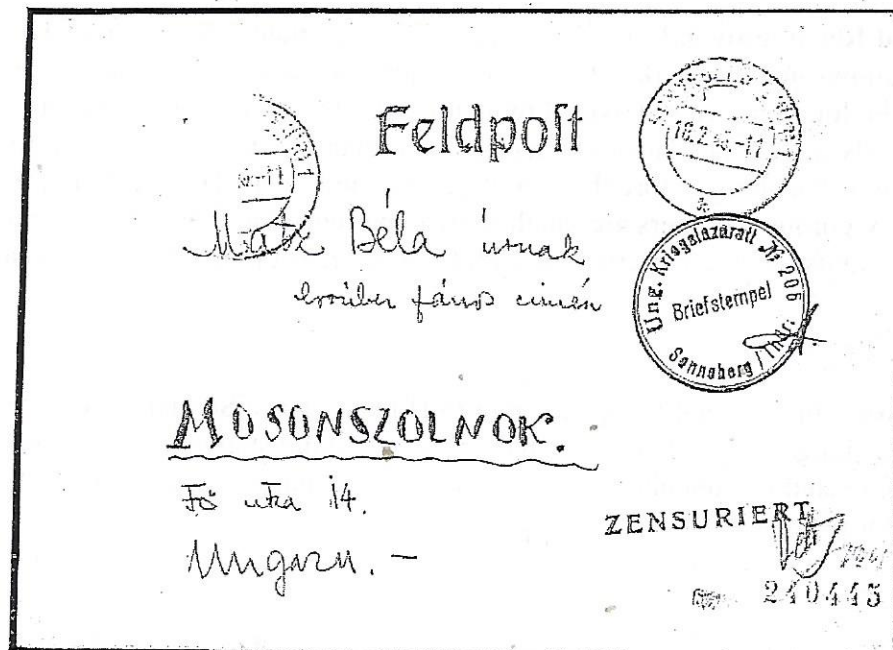 Feldpost
18.2.45.-11
-11
Ung. Kriegslazarett № 206
Briefstempel
Sonneberg / Thür.
Béla úrnak
János címén
MOSONSZOLNOK.
Fő utca 14.
Ungarn. -
ZENSURIERT
240445